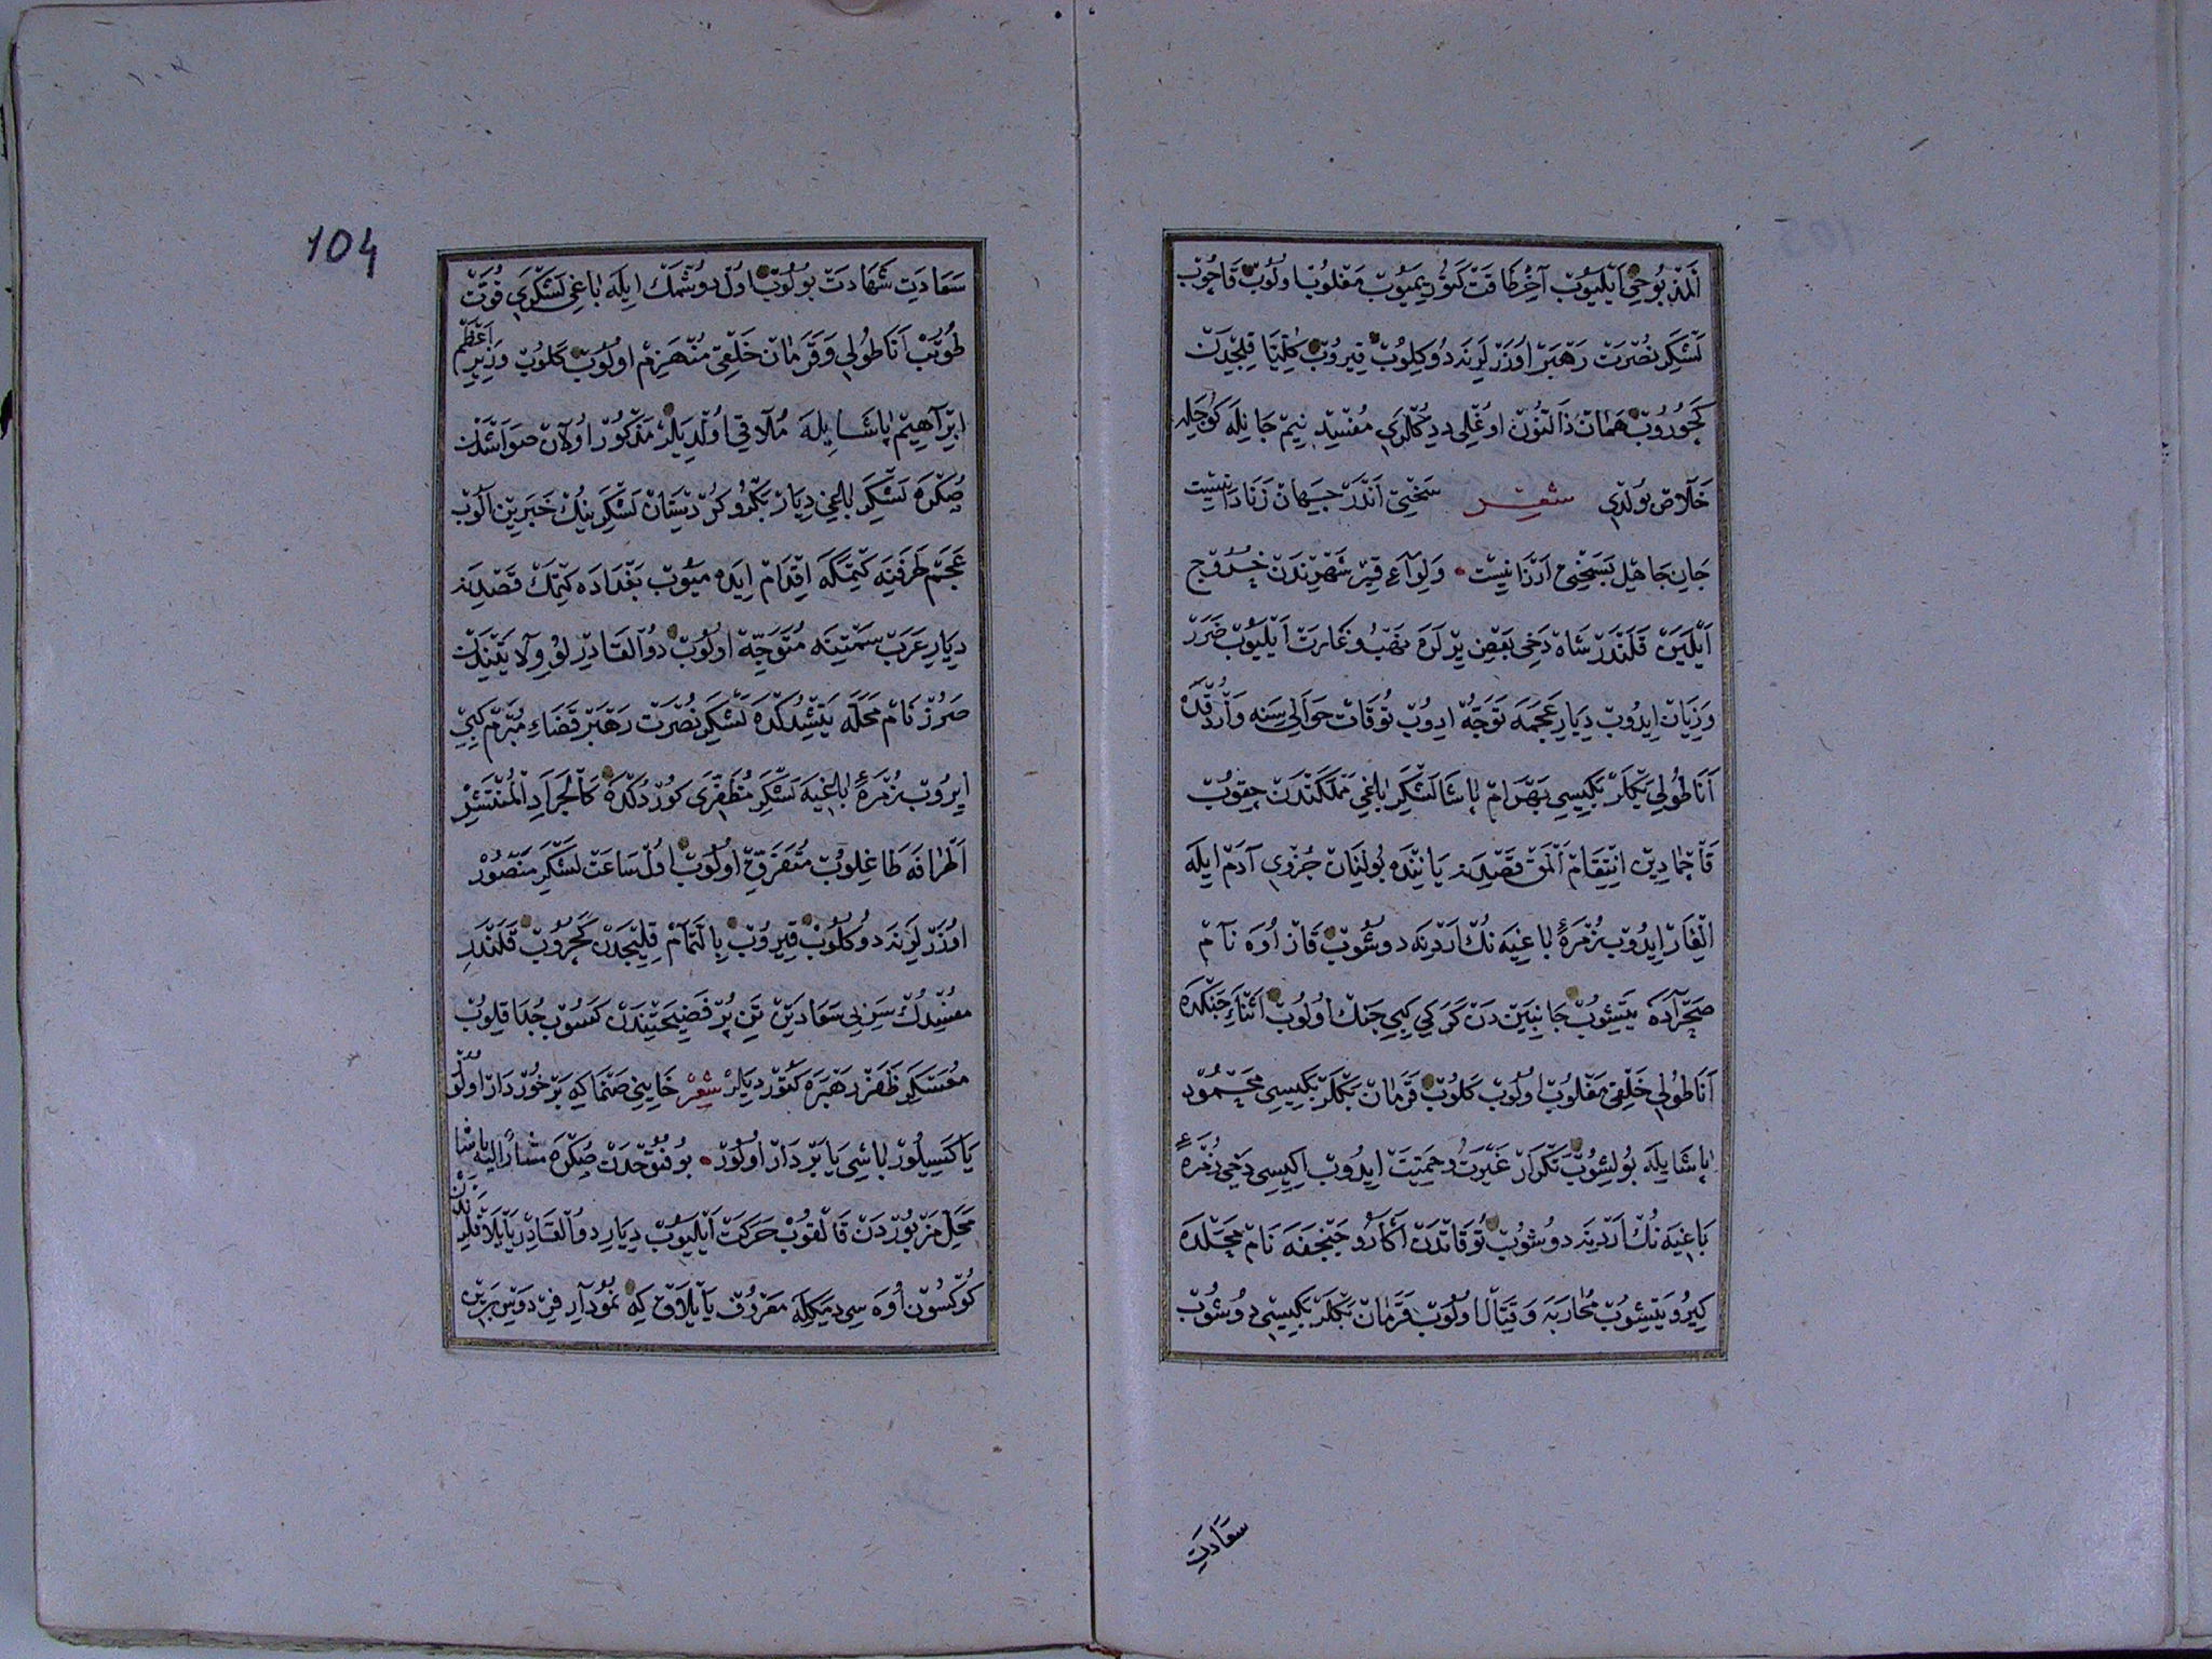 آلمز بوخي ايليوب آخر طاقت كتوريميوب مغلوب اولوب قاچوب
لشكر نصرت رهبر اوزرلرينه دوكلوب قيروب كليتا قلجدن
كچوروب همان ذالنون اوغلى ددكلرى مفسد نيم جانيله كوجيله
خلاص بولدى شعر سختى اندر جهان زنادانيست
جان جاهل بسختى ارزانيست ولواء قير شهرندن خروج
ايلين قلندر شاه دخى بعض يرلره نهب و غارت ايليوب ضرر
وزيان ايدوب ديار عجمه توجه ادوب توقات حوالى سنه واردقده
اناطولى بكلر بكيسى بهرام پاشا لشكر باغى مملكتندن چقوب
قاچمادين انتقام المق قصدينه ياننده بولنان جزوى آدم ايله
الغار ايدوب زمرهٔ باغيه نك اردينه دوشوب قاز اوه نام
صحراده يتشوب جانبين دن كركى كبى جنك اولوب اثناء جنكده
اناطولى خلقى مغلوب اولوب كلوب قرمان بكلر بكيسى محمود
پاشايله بولشوب تكرار غيرت و حميت ايدوب ايكيسى دخى زمرهٔ
باغيه نك اردينه دوشوب توقاتدن اكارو جنجفه نام محلده
كيرو يتشوب محاربه و قتال اولوب قرمان بكلر بكيسى دوشوب
سعادت
104
سعادت شهادت بولوب اول دوشمك ايله باغى لشكرى قوت
طوتب اناطولى و قرمان خلقى منهزم اولوب كلوب وزير اعظم
ابراهيم پاشايله ملاقى اولديلر مذكور اولان صواشدن
صكره لشكر باغى ديار بكر و كردستان لشكرينك خبرين الوب
عجم طرفينه كتمكه اقدام ايده ميوب بغداده كتمك قصدينه
ديار عرب سمتينه متوجه اولوب ذوالقادرلو ولايتيندن
صروز نام محله يتشدكده لشكر نصرت رهبر قضاء مبرم كبى
ايروب زمرهٔ باغيه لشكر مظفرى كوردكده كالجراد المنتشر
اطرافه طاغلوب متفرق اولوب اول ساعت لشكر منصور
اوزرلرينه دوكلوب قيروب بالتمام قلجدن كچروب قلندر
مفسدك سر بى سعادتين تن پر فضيحتيندن كسوب جدا قلوب
معسكر ظفر رهبره كتورديلر شعر خاينى صنما كه برخوردار اولو
يا كسيلور باشى يا بر دار اولور بو فتوحدن صكره مشاراليه پاشا
محل مزبوردن قالقوب حركت ايليوب ديار ذوالقادر يايلاقلرندن
كوكسون اوه سى ديمكله معروف يايلاق كه نمودار فردوس برين